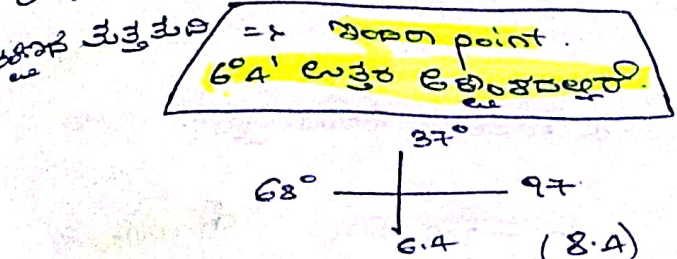 ತುತ್ತತುದಿ => ಇಂದಿರಾ point.
6°4' ಉತ್ತರ ಅಕ್ಷಾಂಶದಲ್ಲಿದೆ.
37°
68° 97
6.4 (8.4)